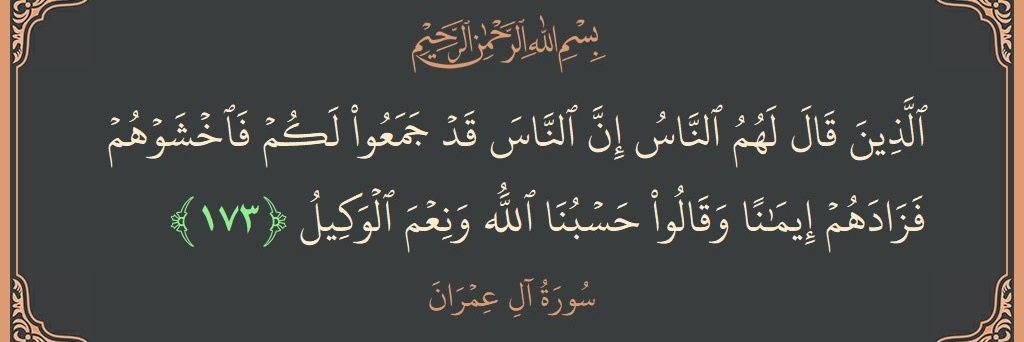 بِسْمِ ٱللَّهِ ٱلرَّحْمَٰنِ ٱلرَّحِيمِ
ٱلَّذِينَ قَالَ لَهُمُ ٱلنَّاسُ إِنَّ ٱلنَّاسَ قَدْ جَمَعُوا۟ لَكُمْ فَٱخْشَوْهُمْ
فَزَادَهُمْ إِيمَـٰنًا وَقَالُوا۟ حَسْبُنَا ٱللَّهُ وَنِعْمَ ٱلْوَكِيلُ ﴿١٧٣﴾
سُورَةُ آلِ عِمْرَانَ